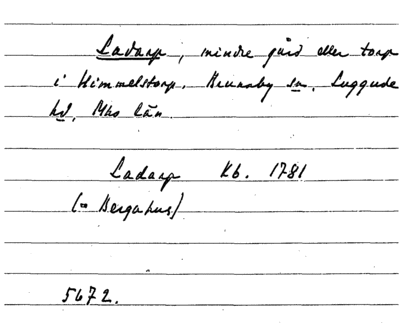 Ladarp, mindre gård eller torp
i Himmelstorp. Brunnby sn, Luggude
hd, Mhs län
Ladarp Kb. 1781
(= Bergahus)
5672.